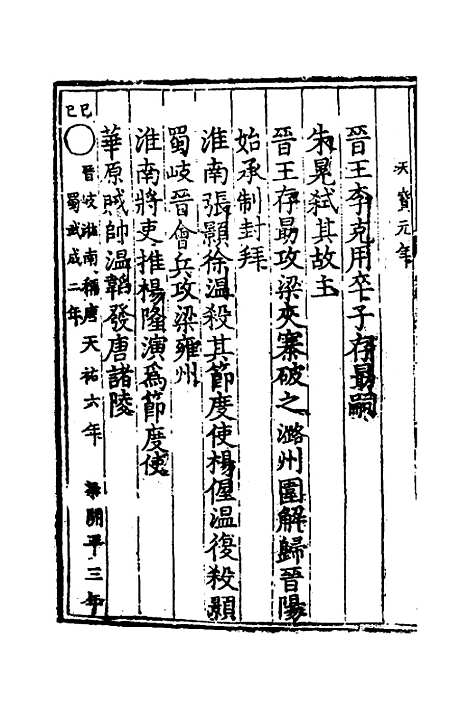 天寶元年
晉王李克用卒子存勗嗣
朱晃弒其故主
晉王存勗攻梁夾寨破之潞州圍解歸晉陽
始承制封拜
淮南張顥徐温殺其節度使楊偓温復殺顥
蜀岐晉會兵攻梁雍州
淮南將吏推楊隆演爲節度使
華原賊帥温韜發唐諸陵
己巳
晉岐淮南稱唐天祐六年 梁開平三年
蜀武成二年